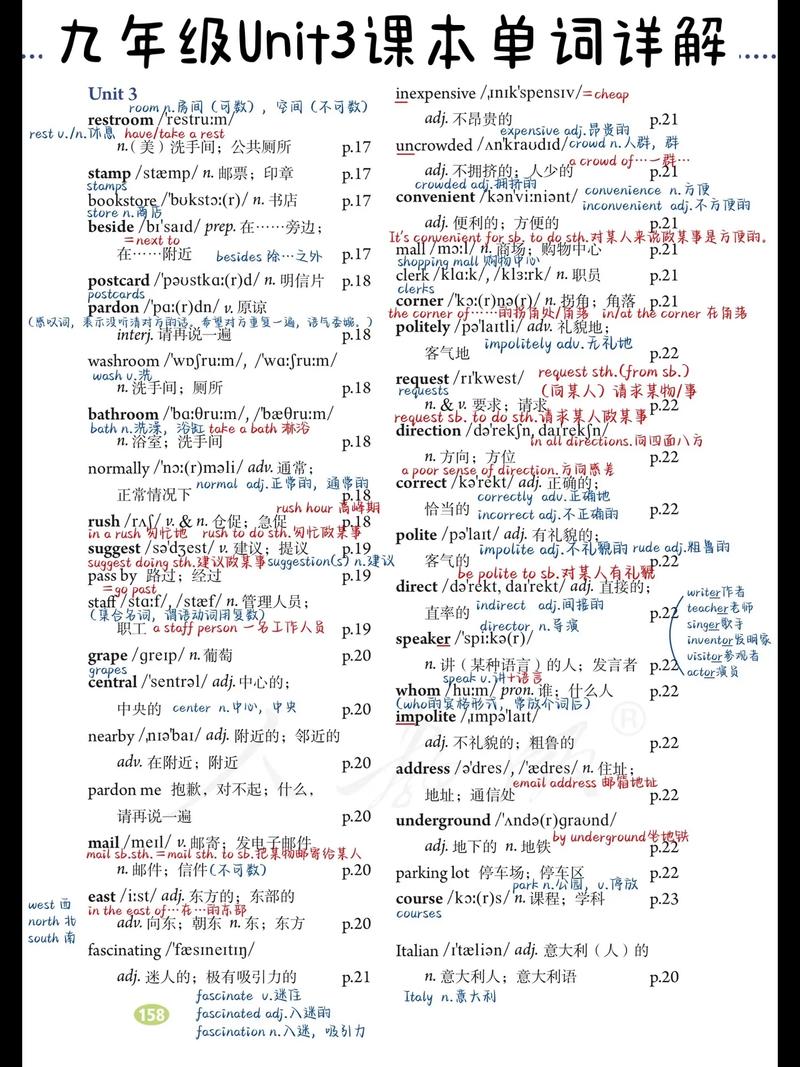 九年级Unit3课本单词详解
Unit 3
room n.房间（可数），空间（不可数）
restroom /'restru:m/
rest v./n.休息 have/take a rest
n.（美）洗手间；公共厕所 p.17
stamp /stæmp/ n. 邮票；印章 p.17
stamps
bookstore /'bʊkstɔ:(r)/ n. 书店 p.17
store n.商店
beside /bɪ'saɪd/ prep. 在……旁边；
=next to
在……附近 besides 除…之外 p.17
postcard /'pəʊstkɑ:(r)d/ n. 明信片 p.18
postcards
pardon /'pɑ:(r)dn/ v. 原谅
（感叹词，表示没听清对方的话，希望对方重复一遍，语气委婉。）
interj. 请再说一遍 p.18
washroom /'wɒʃru:m/, /'wɑ:ʃru:m/
wash v.洗
n. 洗手间；厕所 p.18
bathroom /'bɑ:θru:m/, /'bæθru:m/
bath n.洗澡，浴缸 take a bath 淋浴
n. 浴室；洗手间 p.18
normally /'nɔ:(r)məli/ adv. 通常；
normal adj.正常的，通常的
正常情况下 p.18
rush hour 高峰期
rush /rʌʃ/ v. & n. 仓促；急促 p.18
in a rush 匆忙地 rush to do sth.匆忙做某事
suggest /sə'dʒest/ v. 建议；提议 p.19
suggest doing sth.建议做某事 suggestion(s) n.建议
pass by 路过；经过 p.19
=go past
staff /stɑ:f/, /stæf/ n. 管理人员；
（集合名词，谓语动词用复数）
职工 a staff person 一名工作人员 p.19
grape /ɡreɪp/ n. 葡萄 p.20
grapes
central /'sentrəl/ adj. 中心的；
中央的 center n.中心，中央 p.20
nearby /ˌnɪə'baɪ/ adj. 附近的；邻近的
adv. 在附近；附近 p.20
pardon me 抱歉，对不起；什么，
请再说一遍 p.20
mail /meɪl/ v. 邮寄；发电子邮件
mail sb.sth.=mail sth. to sb.把某物邮寄给某人
n. 邮件；信件(不可数) p.20
east /i:st/ adj. 东方的；东部的
west 西
in the east of…在…的东部
north 北
adv. 向东；朝东 n. 东；东方 p.20
south 南
fascinating /'fæsɪneɪtɪŋ/
adj. 迷人的；极有吸引力的 p.21
fascinate v.迷住
fascinated adj.入迷的
fascination n.入迷，吸引力
158
inexpensive /ˌɪnɪk'spensɪv/=cheap
adj. 不昂贵的 p.21
expensive adj.昂贵的
uncrowded /ʌn'kraʊdɪd/ crowd n.人群，群
a crowd of…一群…
adj. 不拥挤的；人少的 p.21
crowded adj.拥挤的
convenient /kən'vi:niənt/ convenience n.方便
inconvenient adj.不方便的
adj. 便利的；方便的 p.21
It's convenient for sb. to do sth.对某人来说做某事是方便的。
mall /mɔ:l/ n. 商场；购物中心 p.21
shopping mall 购物中心
clerk /klɑ:k/, /klɜ:rk/ n. 职员 p.21
clerks
corner /'kɔ:(r)nə(r)/ n. 拐角；角落 p.21
the corner of……的拐角处/角落 in/at the corner 在角落
politely /pə'laɪtli/ adv. 礼貌地；
impolitely adv.无礼地
客气地 p.22
request /rɪ'kwest/ request sth.(from sb.)
requests （向某人）请求某物/事
n. & v. 要求；请求 p.22
request sb. to do sth.请求某人做某事
direction /də'rekʃn, daɪ'rekʃn/
in all directions.向四面八方
n. 方向；方位 p.22
a poor sense of direction.方向感差
correct /kə'rekt/ adj. 正确的；
correctly adv.正确地
恰当的 p.22
incorrect adj.不正确的
polite /pə'laɪt/ adj. 有礼貌的；
impolite adj.不礼貌的 rude adj.粗鲁的
客气的 p.22
be polite to sb.对某人有礼貌
direct /də'rekt, daɪ'rekt/ adj. 直接的；
直率的 indirect adj.间接的 p.22
director n.导演
speaker /'spi:kə(r)/
n. 讲（某种语言）的人；发言者 p.22
speak v.讲+语言
writer作者
teacher老师
singer歌手
inventor发明家
visitor参观者
actor演员
whom /hu:m/ pron. 谁；什么人 p.22
(who的宾格形式，常放介词后)
impolite /ˌɪmpə'laɪt/
adj. 不礼貌的；粗鲁的 p.22
address /ə'dres/, /'ædres/ n. 住址；
email address 邮箱地址
地址；通信处 p.22
underground /'ʌndə(r)ɡraʊnd/
by underground坐地铁
adj. 地下的 n. 地铁 p.22
parking lot 停车场；停车区 p.22
park n.公园，v.停放
course /kɔ:(r)s/ n. 课程；学科 p.23
courses
Italian /ɪ'tæliən/ adj. 意大利（人）的
n. 意大利人；意大利语 p.20
Italy n.意大利